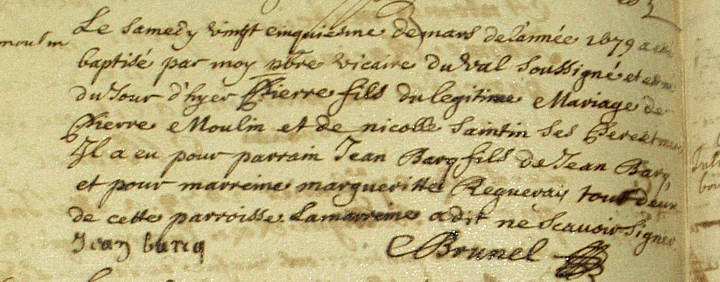 Le samedy vingt cinquiesme de mars de l'année 1679 a esté
moulin
baptisé par moy pbre vicaire du val soussigné et est né
du jour d'hyer Pierre fils du legitime Mariage de
Pierre Moulin et de nicolle Saintin ses Pere et mere
Il a eu pour parrain Jean Barq fils de Jean Barq
et pour marreine margueritte Requeray tout deux
de cette parroisse Lamarreine a dit ne scavoir signer
Jean barq
Brunel